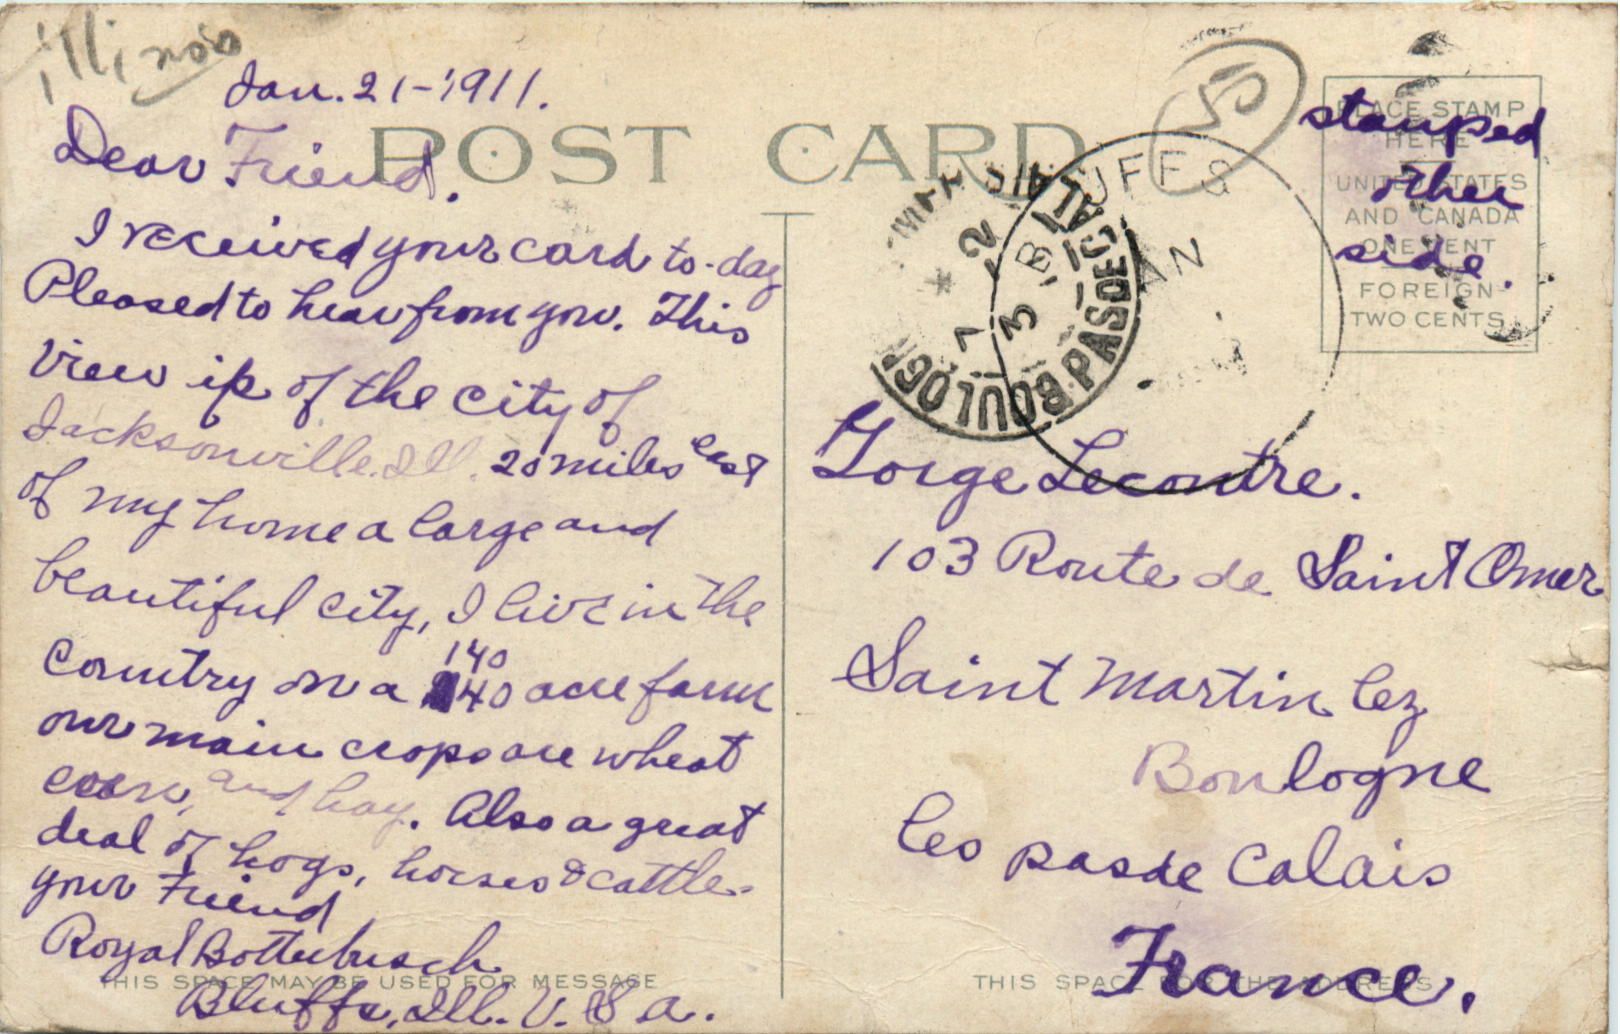 illinois
Jan. 21-1911.
POST CARD
Dear Friend.
I received your card to-day
Pleased to hear from you. This
view is of the city of
Jacksonville. Ill. 20 miles east
of my home a large and
beautiful city, I live in the
country on a 140
40 acre farm
our main crops are wheat
corn, and hay. Also a great
deal of hogs, horses & cattle-
your Friend
Royal Botterbusch
THIS SPACE MAY BE USED FOR MESSAGE
Bluffs, Ill. U. S. A.
50
UFFS
AN
BOULOGNE
PAS DE CALAIS
7
3
PLACE STAMP
HERE
UNITED STATES
AND CANADA
ONE CENT
FOREIGN
TWO CENTS
stamped
other
side.
Gorge Lecontre.
103 Route de Saint Omer
Saint Martin lez
Boulogne
les pas de Calais
France.
THIS SPACE FOR THE ADDRESS